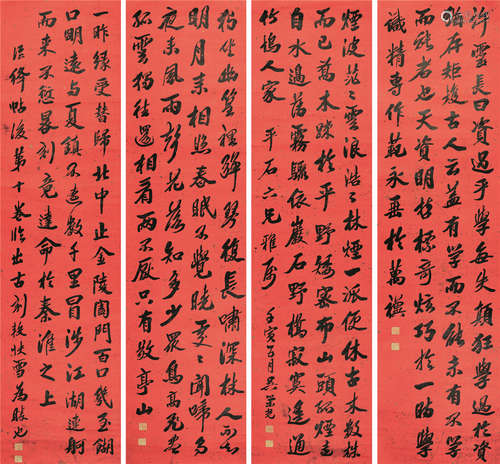 許雲長曰資過乎學每失顛狂學過於資
猶存矩矱古人云蓋有學而不能未有不學
而能者也天資明哲標奇炫巧於一時學
識精專作範永垂於萬禩
煙波茫茫雲浪浩浩林煙一派便休古木數株
而已喬木疎於平野矮窠布山頭
自水邊舊霧依巖石野橋寂寞遙通
竹塢人家 平石六兄雅屬 壬寅月吳榮光
獨坐幽篁裡彈琴復長嘯深林人不知
明月來相照春眠不覺曉處處聞啼鳥
夜來風雨聲花落知多少眾鳥高飛盡
孤雲獨往還相看兩不厭只有敬亭山
一昨緣受替歸北中止金陵闔門百口幾至餬
口明遠與夏鎮不遠數千里冒涉江湖連舸
而來不愆晷刻竟達命於秦淮之上
絳帖後第十卷臨出古刻較快雪為勝光